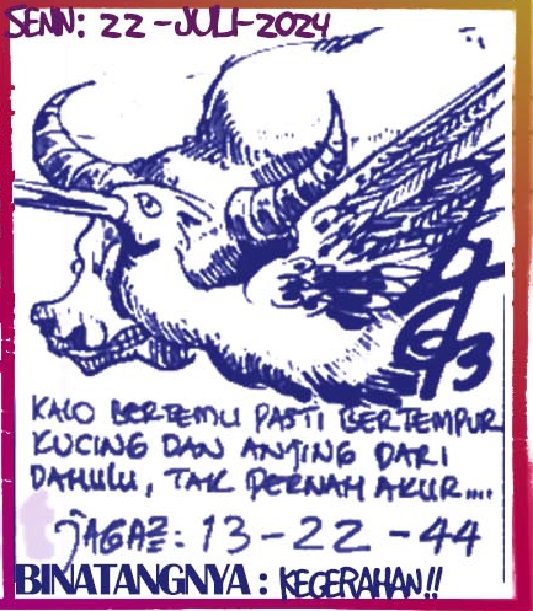 SENN: 22-JULI-2024
4
9
13
KALO BERTEMU PASTI BERTEMPUR
KUCING DAN ANJING DARI
DAHULU, TAK PERNAH AKUR....
JAGA2: 13-22-44
BINATANGNYA : KEGERAHAN!!